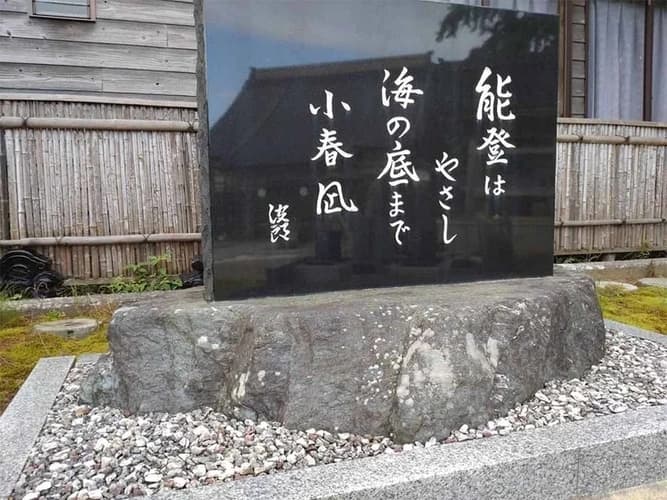 能登は
やさし
海の底まで
小春凪